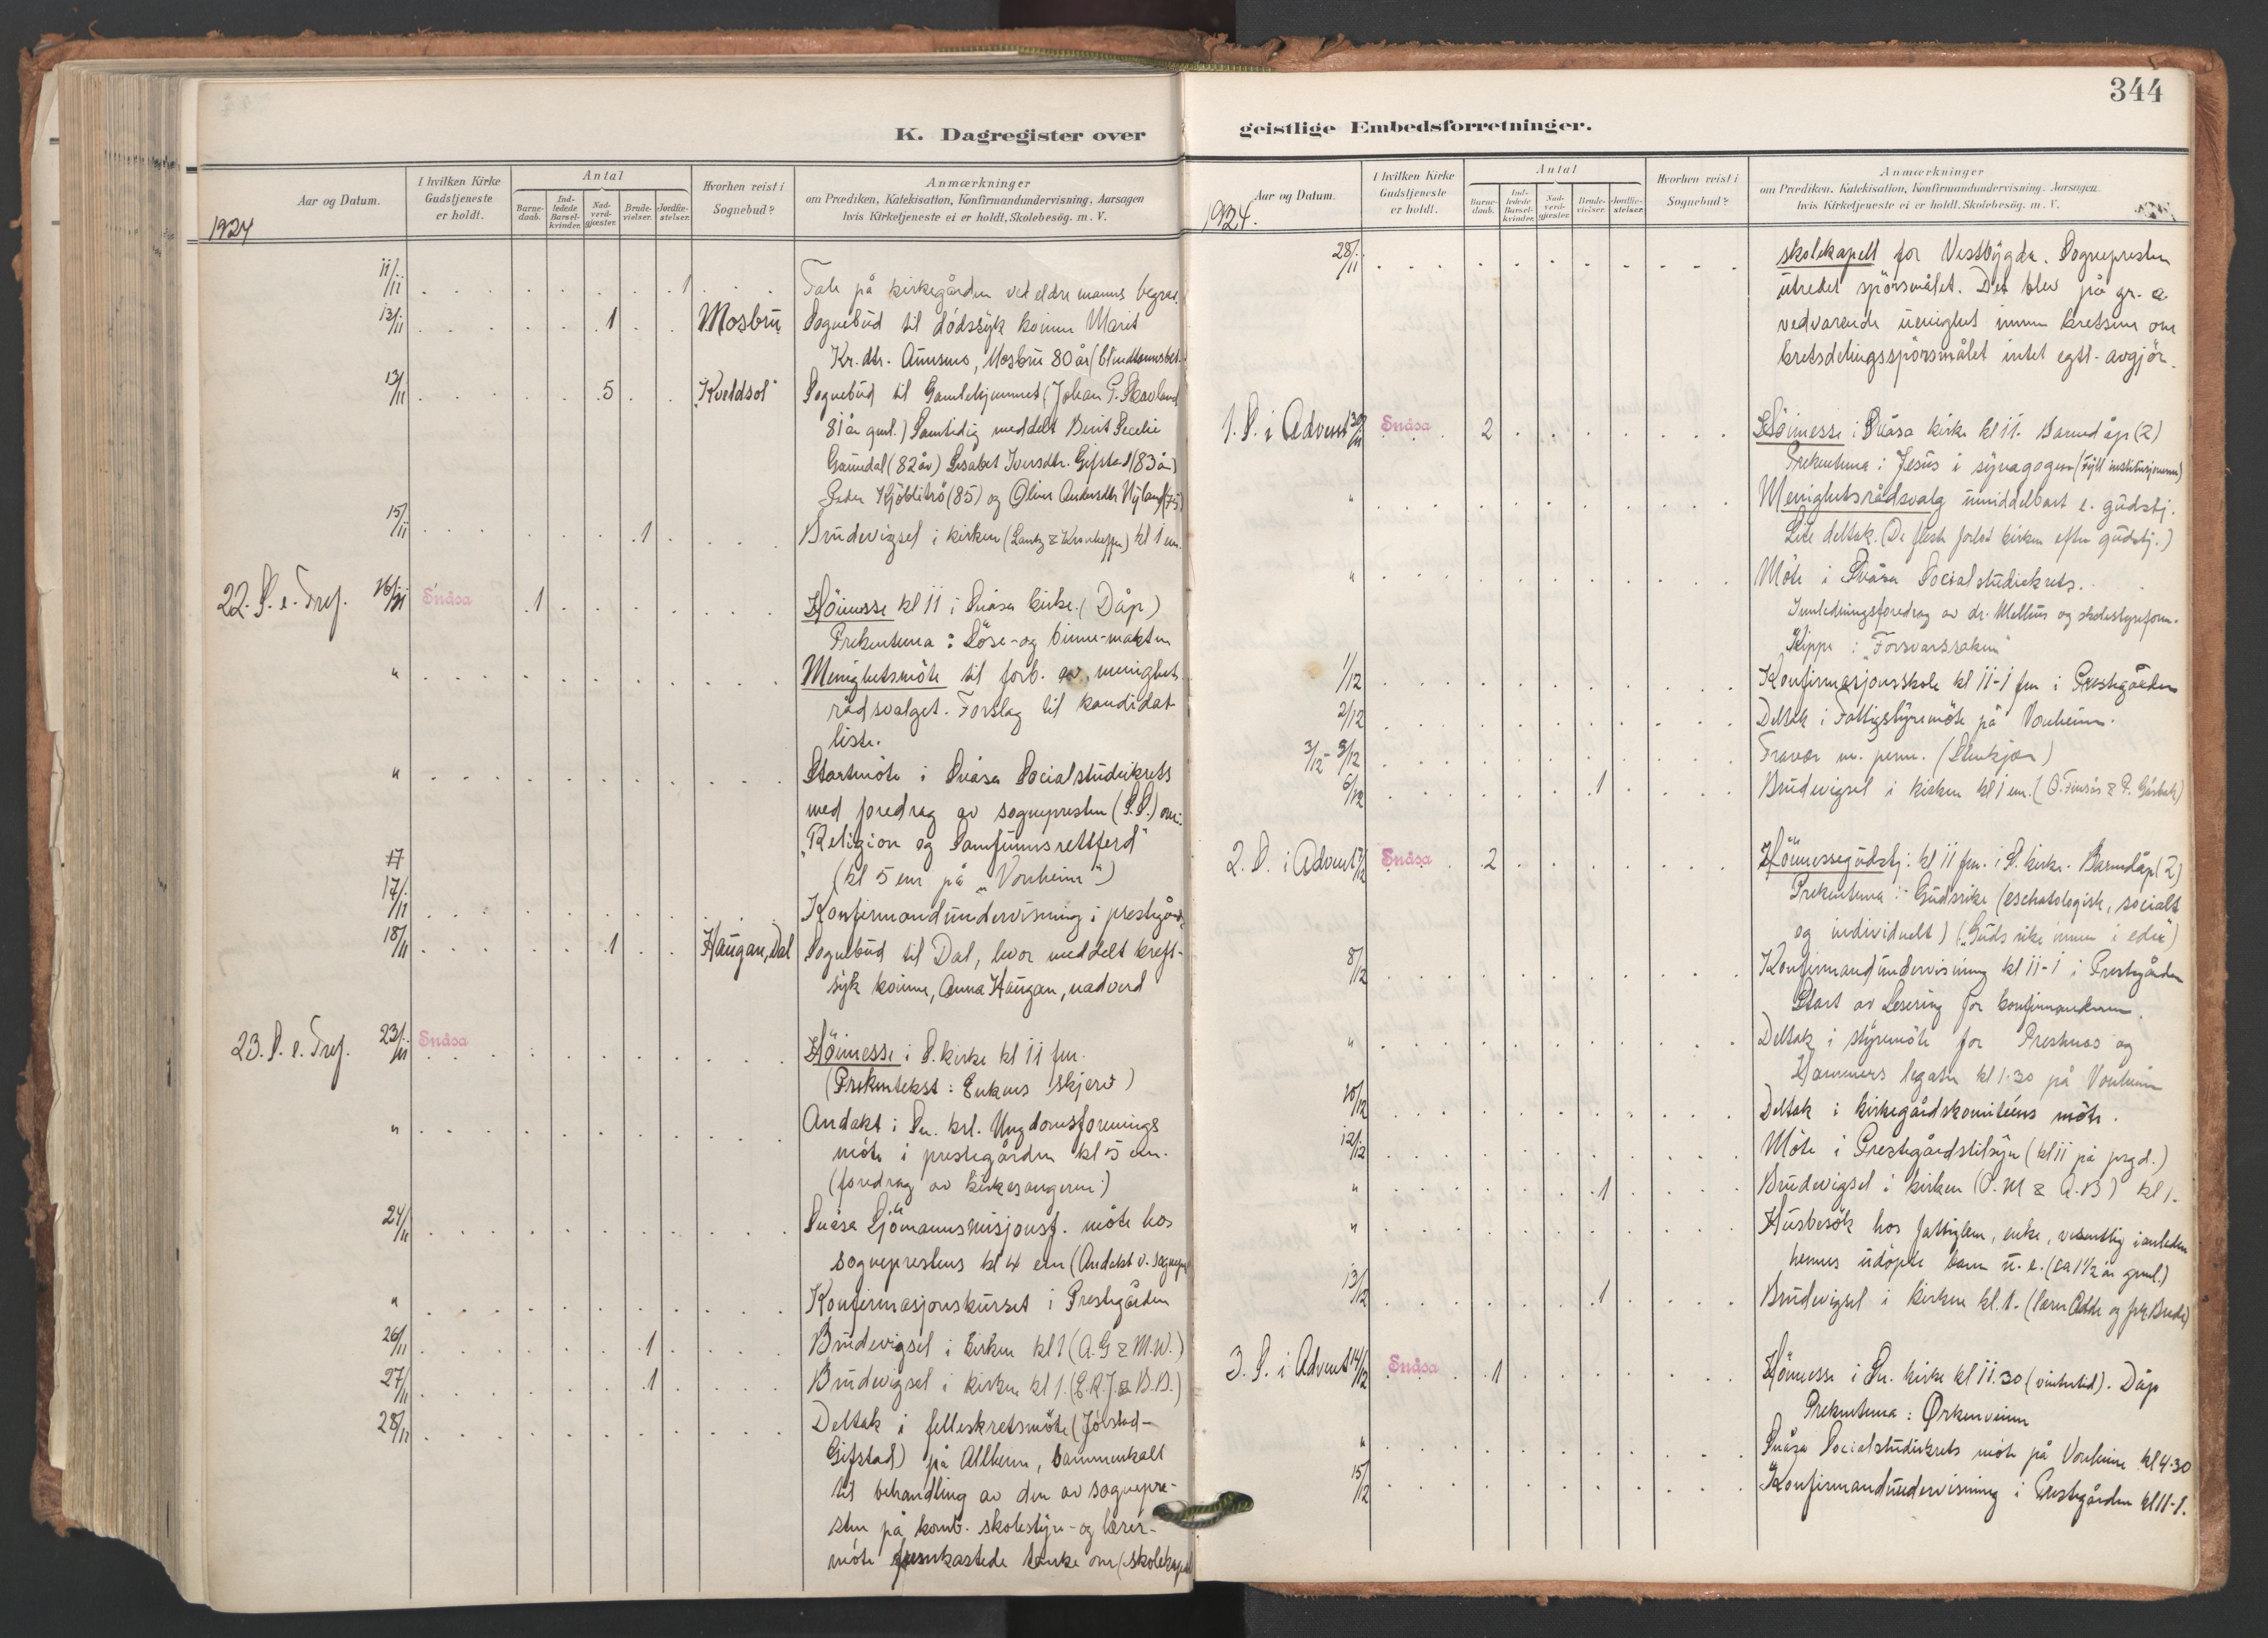 K. Dagregister over
Aar og Datum.
I hvilken Kirke
Gudstjeneste
er holdt.
Antal
Barne-
daab.
Ind-
ledede
Barsel-
kvinder.
Nad-
verd-
gjæster.
Brude-
vielser.
Jordfæ-
stelser.
Hvorhen reist i
Sognebud?
Anmærkninger
om Prædiken, Katekisation, Konfirmandundervisning, Aarsagen
hvis Kirketjeneste ei er holdt, Skolebesøg. m. V.
1924
11/11 1 Tale på kirkegården ved eldre manns begrav.
13/11 1 Mosbru Sognebud til dødssyk kvinne Marit
Kr. dtr. Aunsmo, Mosbru 80 år
13/11 5 "Kveldsol" Sognebud til Gamlehjemmet (Johan P. Skavland
81 år gml.) Samtidig meddelt Berit Secelie
Gaundal (82 år) Lisabet Iversdtr. Gifstad (83 år)
Peder (85) og Oline Andersdtr Nyland (75)
15/11 1 Brudevigsel i kirken kl 1 em.
22. S. e. Tref. 16/11 Snåsa 1 Höimesse kl 11 i Snåsa kirke. (Dåp)
Prekentema: Löse- og binne-makten
" Menighetsmöte til forb. av menighets-
rådsvalget. Forslag til kandidat-
liste.
" Startmöte i Snåsa Socialstudiekrets
med foredrag av sognepresten (S.S.) om:
"Religion og Samfunnsrettferd"
17 (kl 5 em på "Vonheim")
17/11 Konfirmandundervisning i prestegård.
18/11 1 Haugan, Dal Sognebud til Dal, hvor meddelt kreft-
syk kvinne, Anna Haugan, nadverd
23. S. e. Tref. 23/11 Snåsa Höimesse i S. kirke kl 11 fm.
(Prekentekst: Enkens skjerv)
" Andakt i Sn. krl. Ungdomsforenings
möte i prestegården kl 5 em.
(foredrag av kirkesangeren)
24/11 Snåsa Sjömannsmisjonsf. möte hos
sogneprestens kl 4 em (Andakt v. sognepr.
" Konfirmasjonskurset i Prestegården
26/11 1 Brudevigsel i kirken kl 1 (A.G & M.W.)
27/11 1 Brudevigsel i kirken kl 1. (E.R.J. & B.B.)
28/11 Deltok i felleskretsmöte (Jörstad-
Gifstad) på Allheim, sammenkalt
til behandling av den av sognepre-
sten på komb. skolestyre- og lærer-
möte fremkastede tanke om (skolekapell
344
geistlige Embedsforretninger.
Aar og Datum.
I hvilken Kirke
Gudstjeneste
er holdt.
Antal
Barne-
daab.
Ind-
ledede
Barsel-
kvinder.
Nad-
verd-
gjæster.
Brude-
vielser.
Jordfæ-
stelser.
Hvorhen reist i
Sognebud?
Anmærkninger
om Prædiken, Katekisation, Konfirmandundervisning, Aarsagen
hvis Kirketjeneste ei er holdt, Skolebesøg. m. V.
1924.
28/11 skolekapell for Vestbygda. Sognepresten
utredet spörsmålet. Det blev på gr. a
vedvarende uenighet innen kretsene om
kretsdelingsspörsmålet intet egtl. avgjör.
1. S. i Advent 30/11 Snåsa 2 Höimesse i Snåsa kirke kl 11. Barnedåp (2)
Prekentema: Jesus i synagogen (Fyll institusjonene)
" Menighetsrådsvalg umiddelbart e. gudstj.
Lite deltak. (De fleste forlot kirken efter gudstj.)
" Möte i Snåsa Socialstudiekrets.
Innledningsforedrag av dr. Mellbius og skolestyreform.
Kippe: "Forsvarssaken"
1/12 Konfirmasjonsskole kl 11-1 fm i Prestegården
2/12 Deltok i Fattigstyremöte på Vonheim.
3/12 - 5/12 Fravær m. perm. (Stenkjær)
6/12 1 Brudevigsel i kirken kl 1 em.
2. S. i Advent 7/12 Snåsa 2 Höimessegudstj. kl 11 fm. i S. kirke. Barnedåp (2)
Prekentema: Gudsrike (eschatologisk, socialt
og individuelt) ("Guds rike innen i eder")
8/12 Konfirmandundervisning kl 11-1 i Prestegården
Start av Lesering for konfirmandene.
" Deltok i styremöte for Prestmos og
Hammers legater kl 1.30 på Vonheim
10/12 Deltok i kirkegårdskomitéens möte.
12/12 Möte i Prestegårdstilsyn (kl 11 på prgd.)
" 1 Brudevigsel i kirken (O.M & A.B) kl 1.
" Husbesök hos fattiglem, enke, vesentlig i anleden
hennes udöpte barn u. e. (ca 1 1/2 år gml.)
13/12 1 Brudevigsel i kirken kl. 1.
3. S. i Advent 14/12 Snåsa 1 Höimesse i Sn. kirke kl 11.30 (vintertid). Dåp
Prekentema: Ørkenveien
" Snåsa Socialstudiekrets möte på Vonheim kl 4.30
15/12 Konfirmandundervisning i Prestegården kl 11-1.